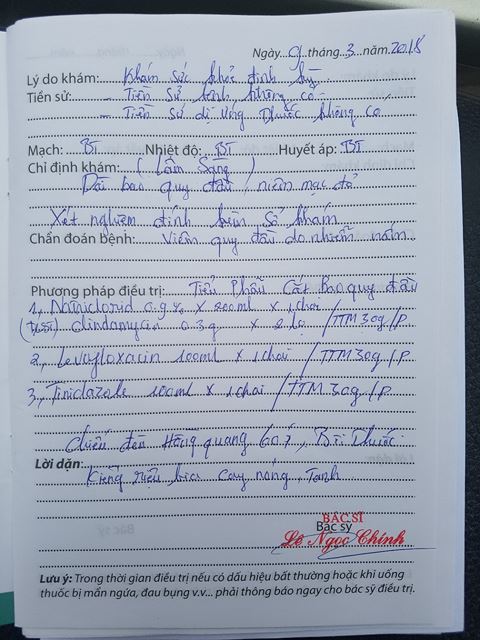 Ngày 9 tháng 3 năm 2018
Lý do khám: Khám sức khỏe định kỳ
Tiền sử: - Tiền sử bệnh không có
- Tiền sử dị ứng thuốc không có
Mạch: BT Nhiệt độ: BT Huyết áp: BT
Chỉ định khám: (Lâm Sàng)
Dài bao quy đầu, niêm mạc đỏ
Xét nghiệm
Chẩn đoán bệnh: Viêm quy đầu do nhiễm nấm
Phương pháp điều trị: Tiểu Phẫu Cắt Bao quy đầu
1, Natriclorid 0.9% x 200ml x 1 chai
clindamycin 0.3g x 2 lọ /TTM 30g/p
2, Levofloxacin 100ml x 1 chai /TTM 30g/p
3, Tinidazole 100ml x 1 chai /TTM 30g/p
Lời dặn:
Kiêng rượu bia cay nóng, Tanh
BÁC SĨ
Bác sỹ
Lê Ngọc Chính
Lưu ý: Trong thời gian điều trị nếu có dấu hiệu bất thường hoặc khi uống
thuốc bị mẩn ngứa, đau bụng v.v... phải thông báo ngay cho bác sỹ điều trị.